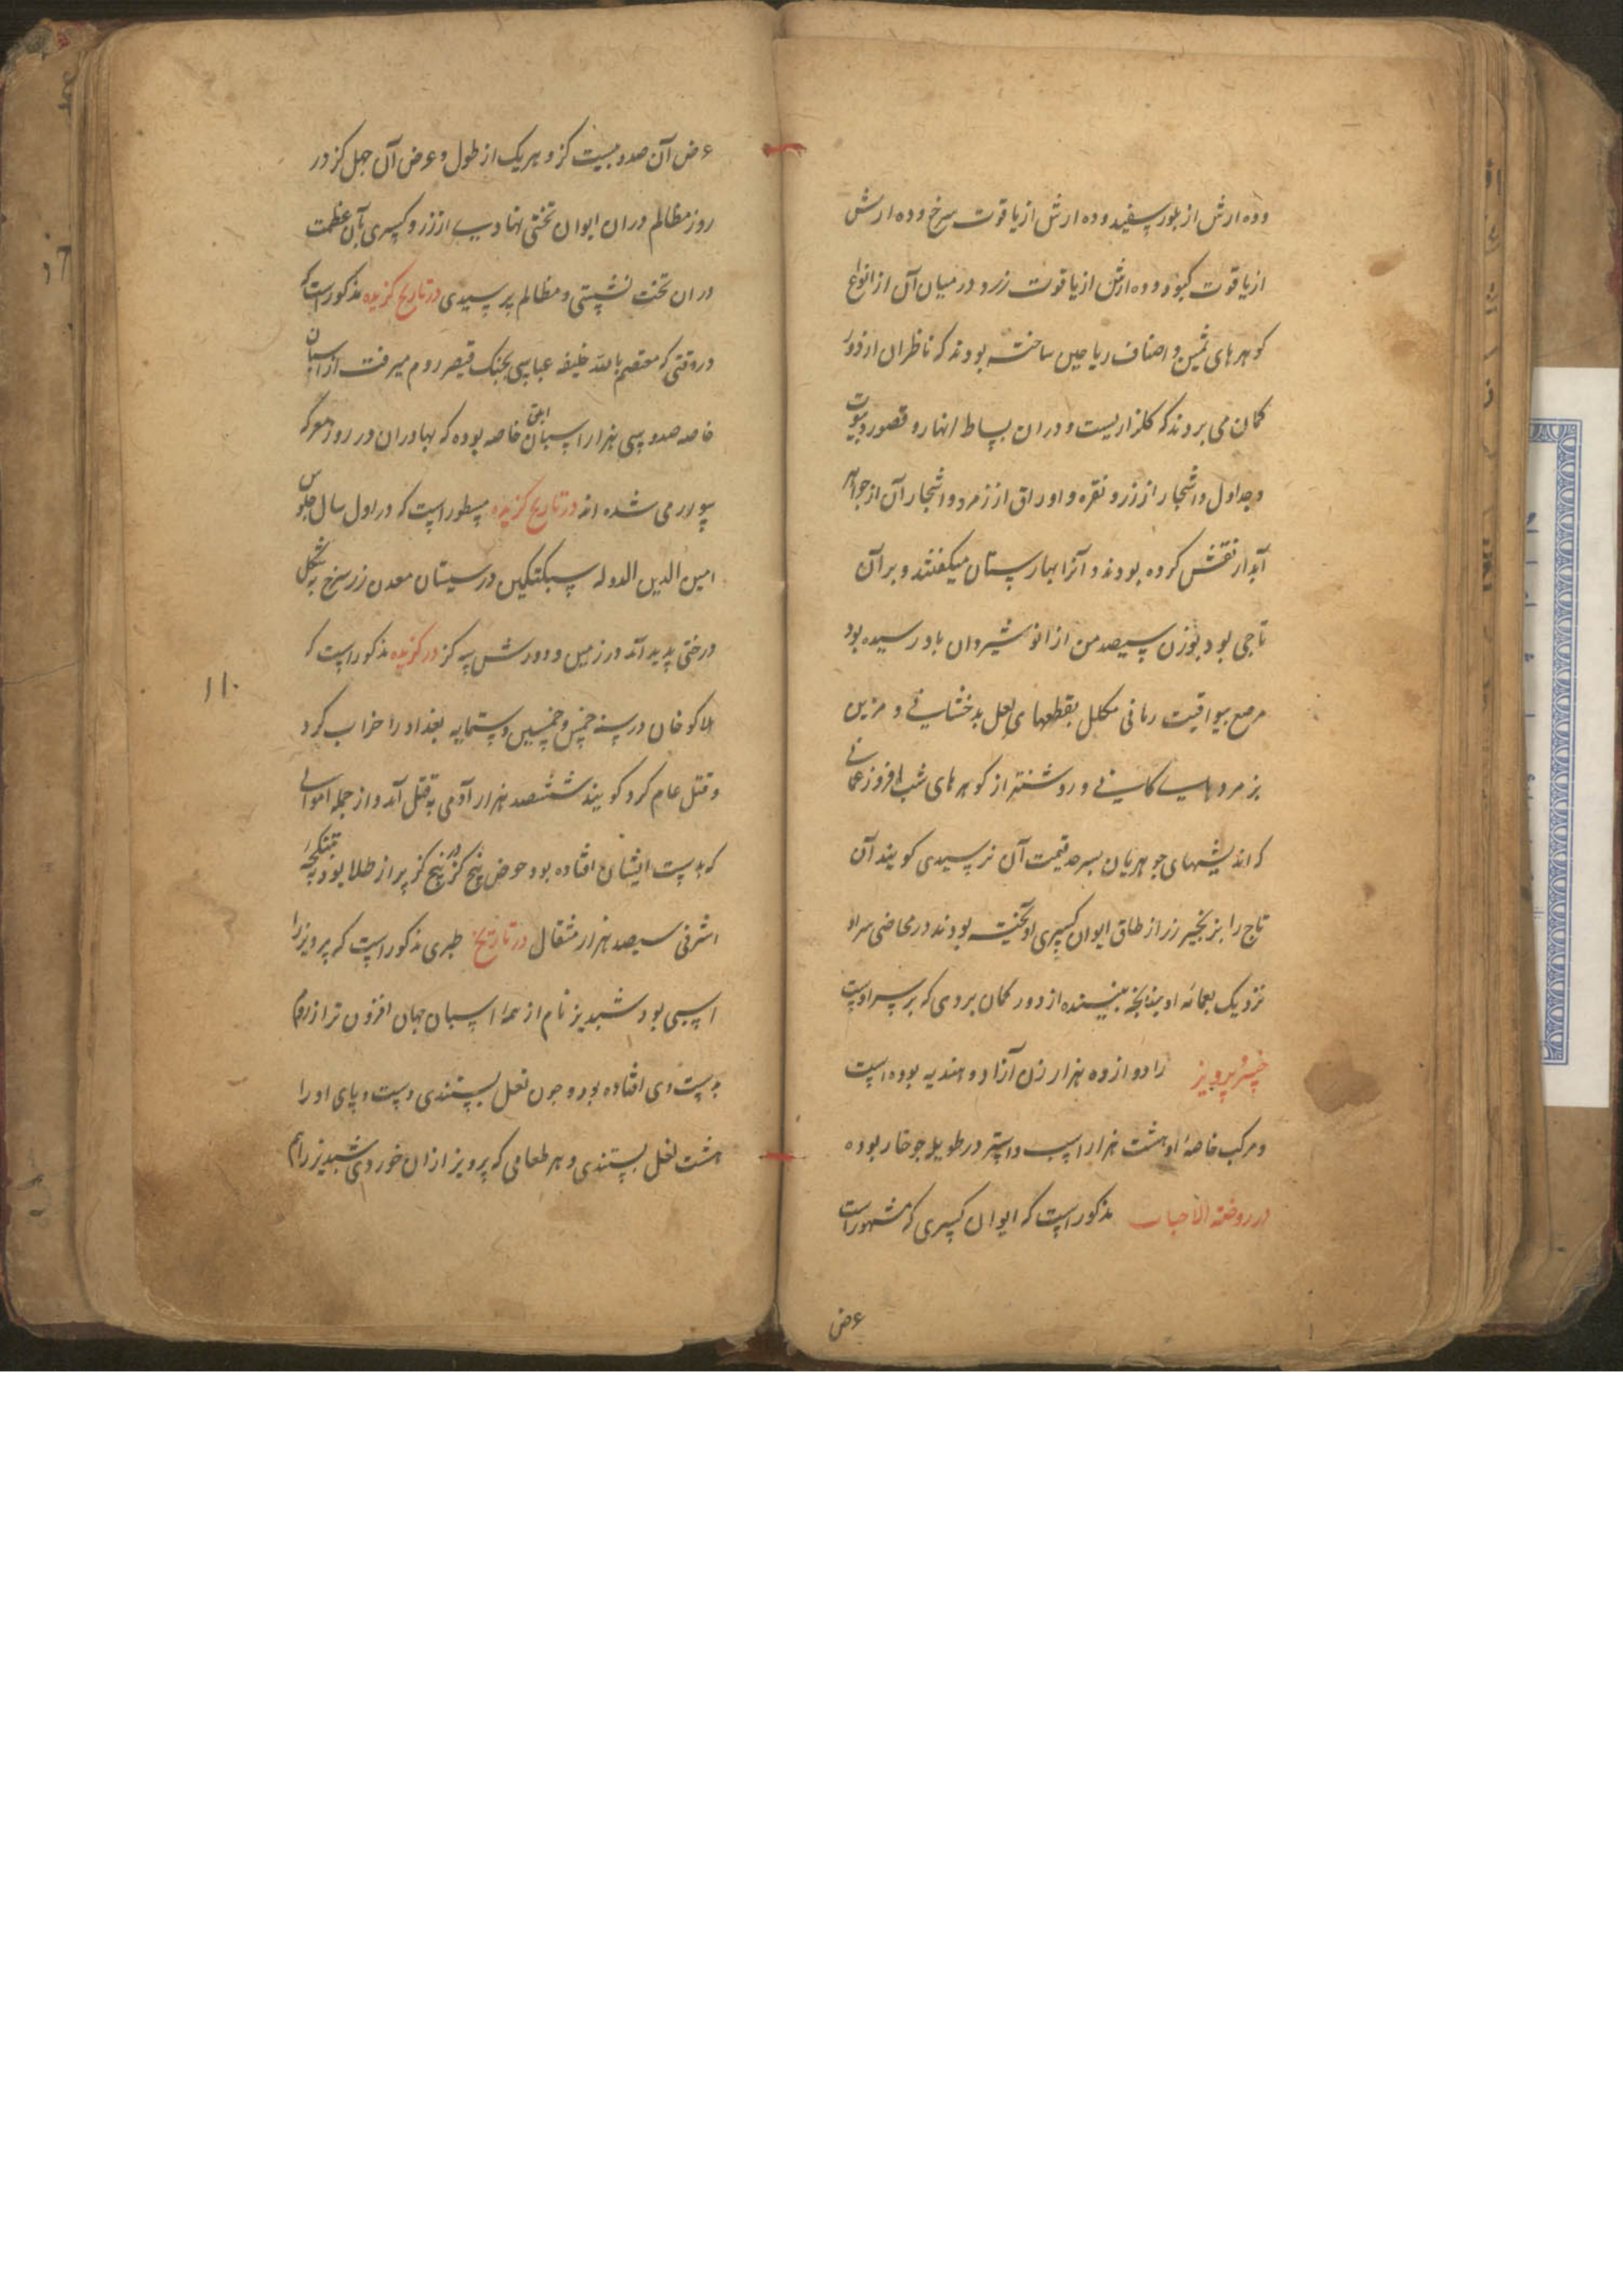 وده ارش از بلور سفید وده ارش از یاقوت سرخ وده ارش
از یاقوت کبود وده ارش از یاقوت زرد و در میان آن از انواع
کوهرهای ثمین و اصناف ریاحین ساخته بودند که ناظران از دور
کمان می بردند که کلزاریست و دران بساط انهار و قصور و بیوت
و جداول و اشجار از زر و نقره و اوراق از زمرد و اشجار آن از جواهر
آبدار نقش کرده بودند و آنرا بهارستان میکفتند و بر آن
تاجی بود بوزن سیصد من از انوشیروان باو رسیده بود
مرصع بیواقیت رمانی مکلل بقطعهای لعل بدخشانی و مزین
بزمردهای کانی و روشنتر از کوهرهای شب افروز عمانی
که اندیشهای جوهریان بسرحد قیمت آن نرسیدی کویند آن
تاج را بزنجیر زر از طاق ایوان کسری آویخته بودند در محاضی سر او
نزدیک بعمامه او چنانچه بیننده از دور کمان بردی که بر سر اوست
خسرو پرویز را دوازده هزار زن آزاد و هندیه بوده است
و مرکب خاصه او هشت هزار اسب و استر در طویله جوخار بوده
در روضة الاحباب مذکور است که ایوان کسری که مشهور است
عرض
عرض آن صد و بیست کز و هر یک از طول و عرض آن چهل کز و در
روز مظالم دران ایوان تختی نهادی از زر و کسری بآن عظمت
دران تخت نشستی و مظالم پرسیدی در تاریخ کزیده مذکور است که
در وقتی که معتصم بالله خلیفه عباسی بجنک قیصر روم میرفت از اسبان
خاصه صد و سی هزار اسبان ابلق خاصه بوده که بهادران در روز معرکه
سوار می شده اند در تاریخ کزیده مسطور است که در اول سال جلوس
امین الدین الدوله سبکتکین در سیستان معدن زر سرخ به شکل
درختی پدید آمد در زمین و دورش سه کز در کزیده مذکور است که
۱۱۰
هلاکو خان در سنه خمس و خمسین و ستمایه بغداد را خراب کرد
و قتل عام کرد کویند ششصد هزار آدمی به قتل آمد و از جمله اموالی
که بدست ایشان افتاده بود حوض پنج کز در پنج کز پر از طلا بود
اشرفی سیصد هزار مثقال در تاریخ طبری مذکور است که پرویز را
اسبی بود شبدیز نام از همه اسبان جهان افزون تر از روم
بدست وی افتاده بود و چون نعل بستندی دست و پای او را
هشت نعل بستندی و هر طعامی که پرویز ازان خوردی شبدیز را هم